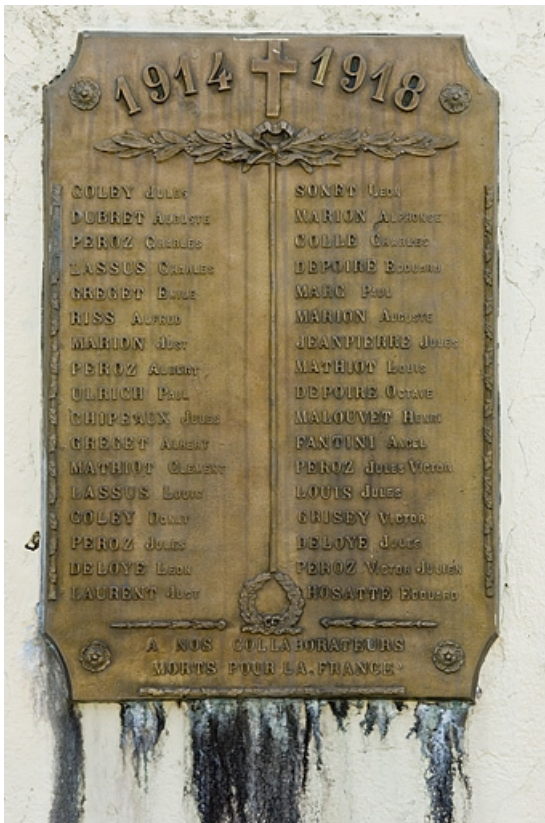 1914 1918
COLEY JULES
DUBRET AUGUSTE
PEROZ CHARLES
LASSUS CHARLES
GREGET EMILE
RISS ALFRED
MARION JUST
PEROZ ALBERT
ULRICH PAUL
CHIPEAUX JULES
GREGET ALBERT
MATHIOT CLEMENT
LASSUS LOUIS
COLEY DONAT
PEROZ JULES
DELOYE LEON
LAURENT JUST
SONET LEON
MARION ALPHONSE
COLLE CHARLES
DEPOIRE EDOUARD
MARC PAUL
MARION AUGUSTE
JEANPIERRE JULES
MATHIOT LOUIS
DEPOIRE OCTAVE
MALOUVET HENRI
FANTINI ANGEL
PEROZ JULES VICTOR
LOUIS JULES
GRISEY VICTOR
DELOYE JULES
PEROZ VICTOR JULIEN
ROSATTE EDOUARD
A NOS COLLABORATEURS
MORTS POUR LA FRANCE